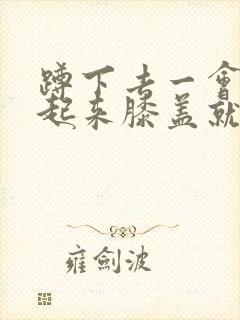 蹲下去一會
起来膝盖就
雍劍波